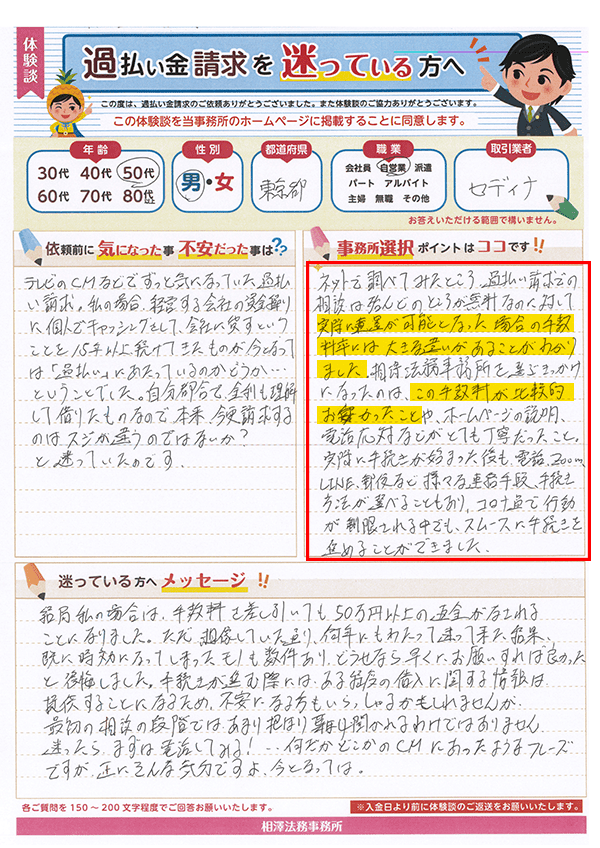 体験談
過払い金請求を迷っている方へ
この度は、過払い金請求のご依頼ありがとうございました。また体験談のご協力ありがとうございます。
この体験談を当事務所のホームページに掲載することに同意します。
年齢
30代 40代 50代
60代 70代 80代以上
性別
男・女
都道府県
東京都
職業
会社員 自営業 派遣
パート アルバイト
主婦 無職 その他
取引業者
セディナ
お答えいただける範囲で構いません。
依頼前に気になった事 不安だった事は??
テレビのCMなどでずっと気になっていた過払
い請求。私の場合、経営する会社の資金繰り
に個人でキャッシングをして、会社に貸すという
ことを15年以上続けてきたものが今となって
は「過払い」にあたっているのかどうか…
ということでした。自分都合で、金利も理解
して借りたものなので本来、今更請求する
のはスジが違うのではないか?
と迷っていたのです。
事務所選択ポイントはココです!!
ネットで調べてみたところ、過払い請求での
相談は殆んどのところが無料なのに対して
実際に返還が可能となった場合の手数
料率には大きな違いがあることがわかり
ました。相澤法務事務所を選ぶきっかけ
になったのは、この手数料が比較的
お安かったことや、ホームページの説明、
電話応対などがとても丁寧だったこと。
実際に手続きが始まった後も、電話、Zoom、
LINE、郵便など様々な連絡手段、手続き
方法が選べることもあり、コロナ渦で行動
が制限される中でも、スムースに手続きを
進めることができました。
迷っている方へメッセージ!!
結局私の場合は、手数料を差し引いても50万円以上の返金がなされる
ことになりました。ただ、想像していた通り、何年にもわたって迷って来た結果、
既に時効になってしまったモノも数件あり、どうせなら早くにお願いすれば良かった
と後悔しました。手続きが進む際には、ある程度の借入に関する情報は
提供することになるため、不安になる方もいらっしゃるかもしれませんが、
最初の相談の段階では、あまり根ほり葉ほり聞かれるわけではありません。
迷ったら、まずは電話してみる!…何だかどこかのCMにあったようなフレーズ
ですが、正にそんな気分ですよ、今となっては。
各ご質問を150〜200文字程度でご回答お願いいたします。
※入金日より前に体験談のご返送をお願いいたします。
相澤法務事務所